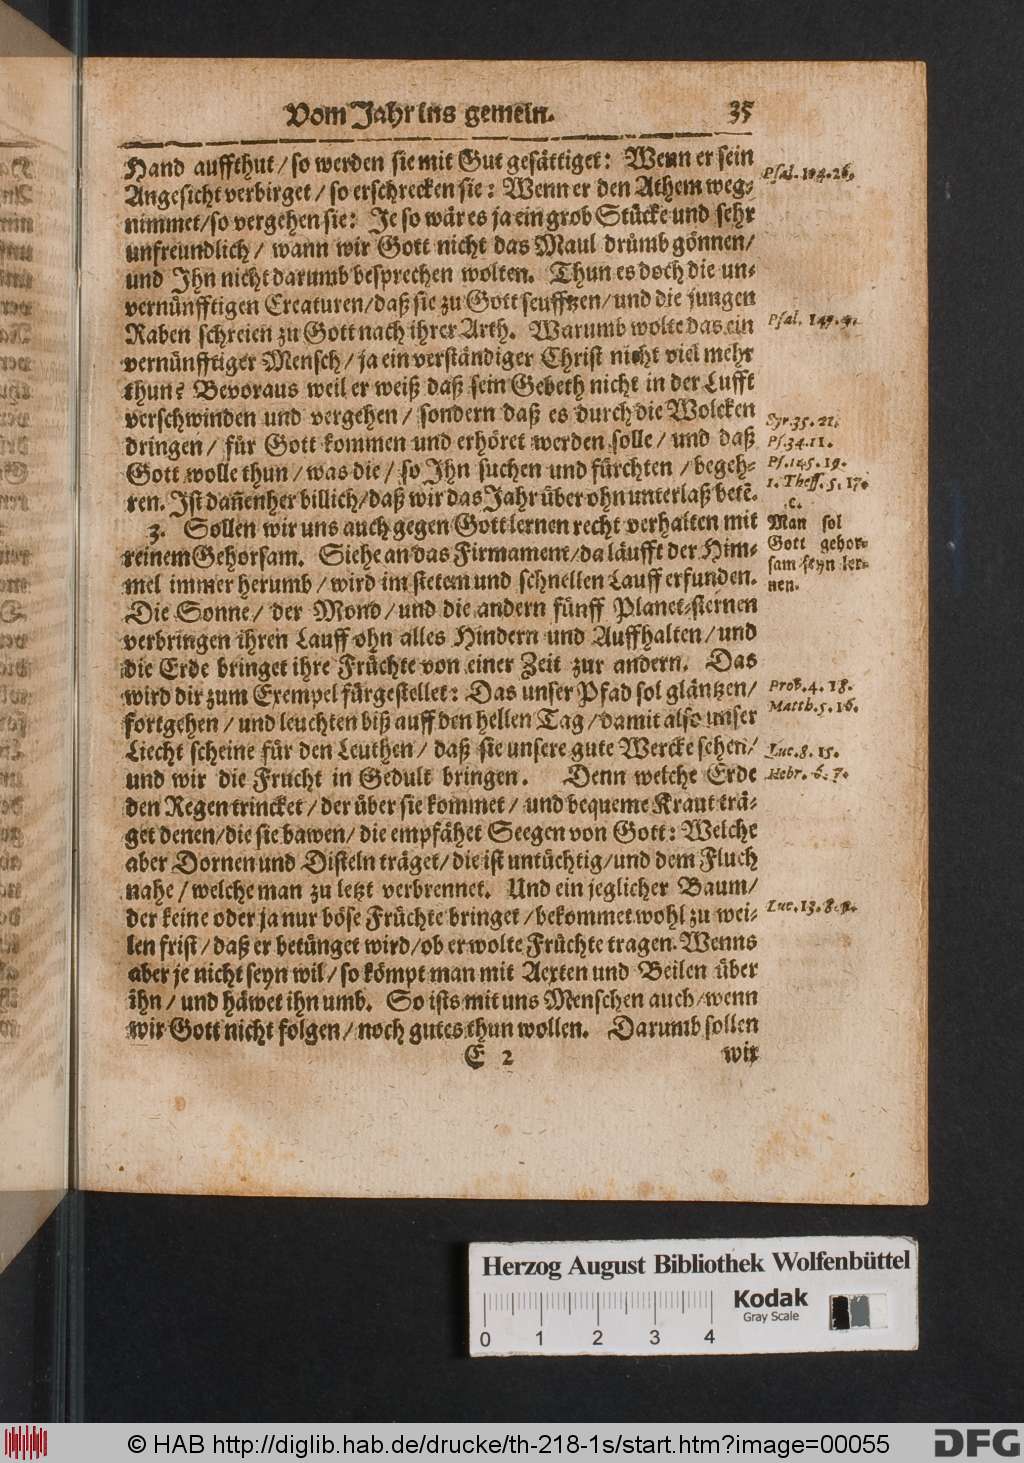 Vom Jahr ins gemein. 35
Hand auffthut / so werden sie mit Gut gesättiget: Wenn er sein
Angesicht verbirget / so erschrecken sie: Wenn er den Athem weg-
nimmet/so vergehen sie: Je so wär es ja ein grob Stücke und sehr
unfreundlich / wann wir Gott nicht das Maul drümb gönnen/
und Jhn nicht darumb besprechen wolten. Thun es doch die un-
vernünfftigen Creaturen/daß sie zu Gott seufftzen/und die jungen
Raben schreien zu Gott nach ihrer Arth. Warumb wolte das ein
vernünfftiger Mensch/ ja ein verständiger Christ nicht viel mehr
thun? Bevoraus weil er weiß daß sein Gebeth nicht in der Lufft
verschwinden und vergehen/ sondern daß es durch die Wolcken
dringen/ für Gott kommen und erhöret werden solle/ und daß
Gott wolle thun/was die/ so Jhn suchen und fürchten /begeh-
ren. Jst dañenher billich/daß wir das Jahr über ohn unterlaß betẽ.
3. Sollen wir uns auch gegen Gott lernen recht verhalten mit
reinem Gehorsam. Siehe an das Firmament/da läufft der Him-
mel immer herumb/wird im stetem und schnellen Lauff erfunden.
Die Sonne/ der Mond/und die andern fünff Planet-sternen
verbringen ihren Lauff ohn alles Hindern und Auffhalten/und
die Erde bringet ihre Früchte von einer Zeit zur andern. Das
wird dir zum Exempel fürgestellet: Das unser Pfad sol gläntzen/
fortgehen/und leuchten biß auff den hellen Tag/damit also unser
Liecht scheine für den Leuthen/ daß sie unsere gute Wercke sehen/
und wir die Frucht in Gedult bringen. Denn welche Erde
den Regen trincket/der über sie kommet/ und bequeme Kraut trä-
get denen/die sie bawen/die empfähet Seegen von Gott: Welche
aber Dornen und Disteln träget/die ist untüchtig/und dem Fluch
nahe/welche man zu letzt verbrennet. Und ein jeglicher Baum/
der keine oder ja nur böse Früchte bringet/bekommet wohl zu wei-
len frist/daß er betünget wird/ob er wolte Früchte tragen. Wenns
aber je nicht seyn wil/so kömpt man mit Aexten und Beilen über
ihn/ und häwet ihn umb. So ists mit uns Menschen auch/wenn
wir Gott nicht folgen/noch gutes thun wollen. Darumb sollen
E 2 wir
Psal. 104. 26.
Psal. 147. 9.
Syr. 35. 21.
Ps. 34. 11.
Ps. 145. 19.
1. Thess. 5. 17.
c.
Man sol
Gott gehor-
sam seyn ler-
nen.
Prob. 4. 18.
Matth. 5. 16.
Luc. 8. 15.
Hebr. 6. 7.
Luc. 13. 8. 9.
Herzog August Bibliothek Wolfenbüttel
Kodak
Gray Scale
0 1 2 3 4
© HAB http://diglib.hab.de/drucke/th-218-1s/start.htm?image=00055
DFG